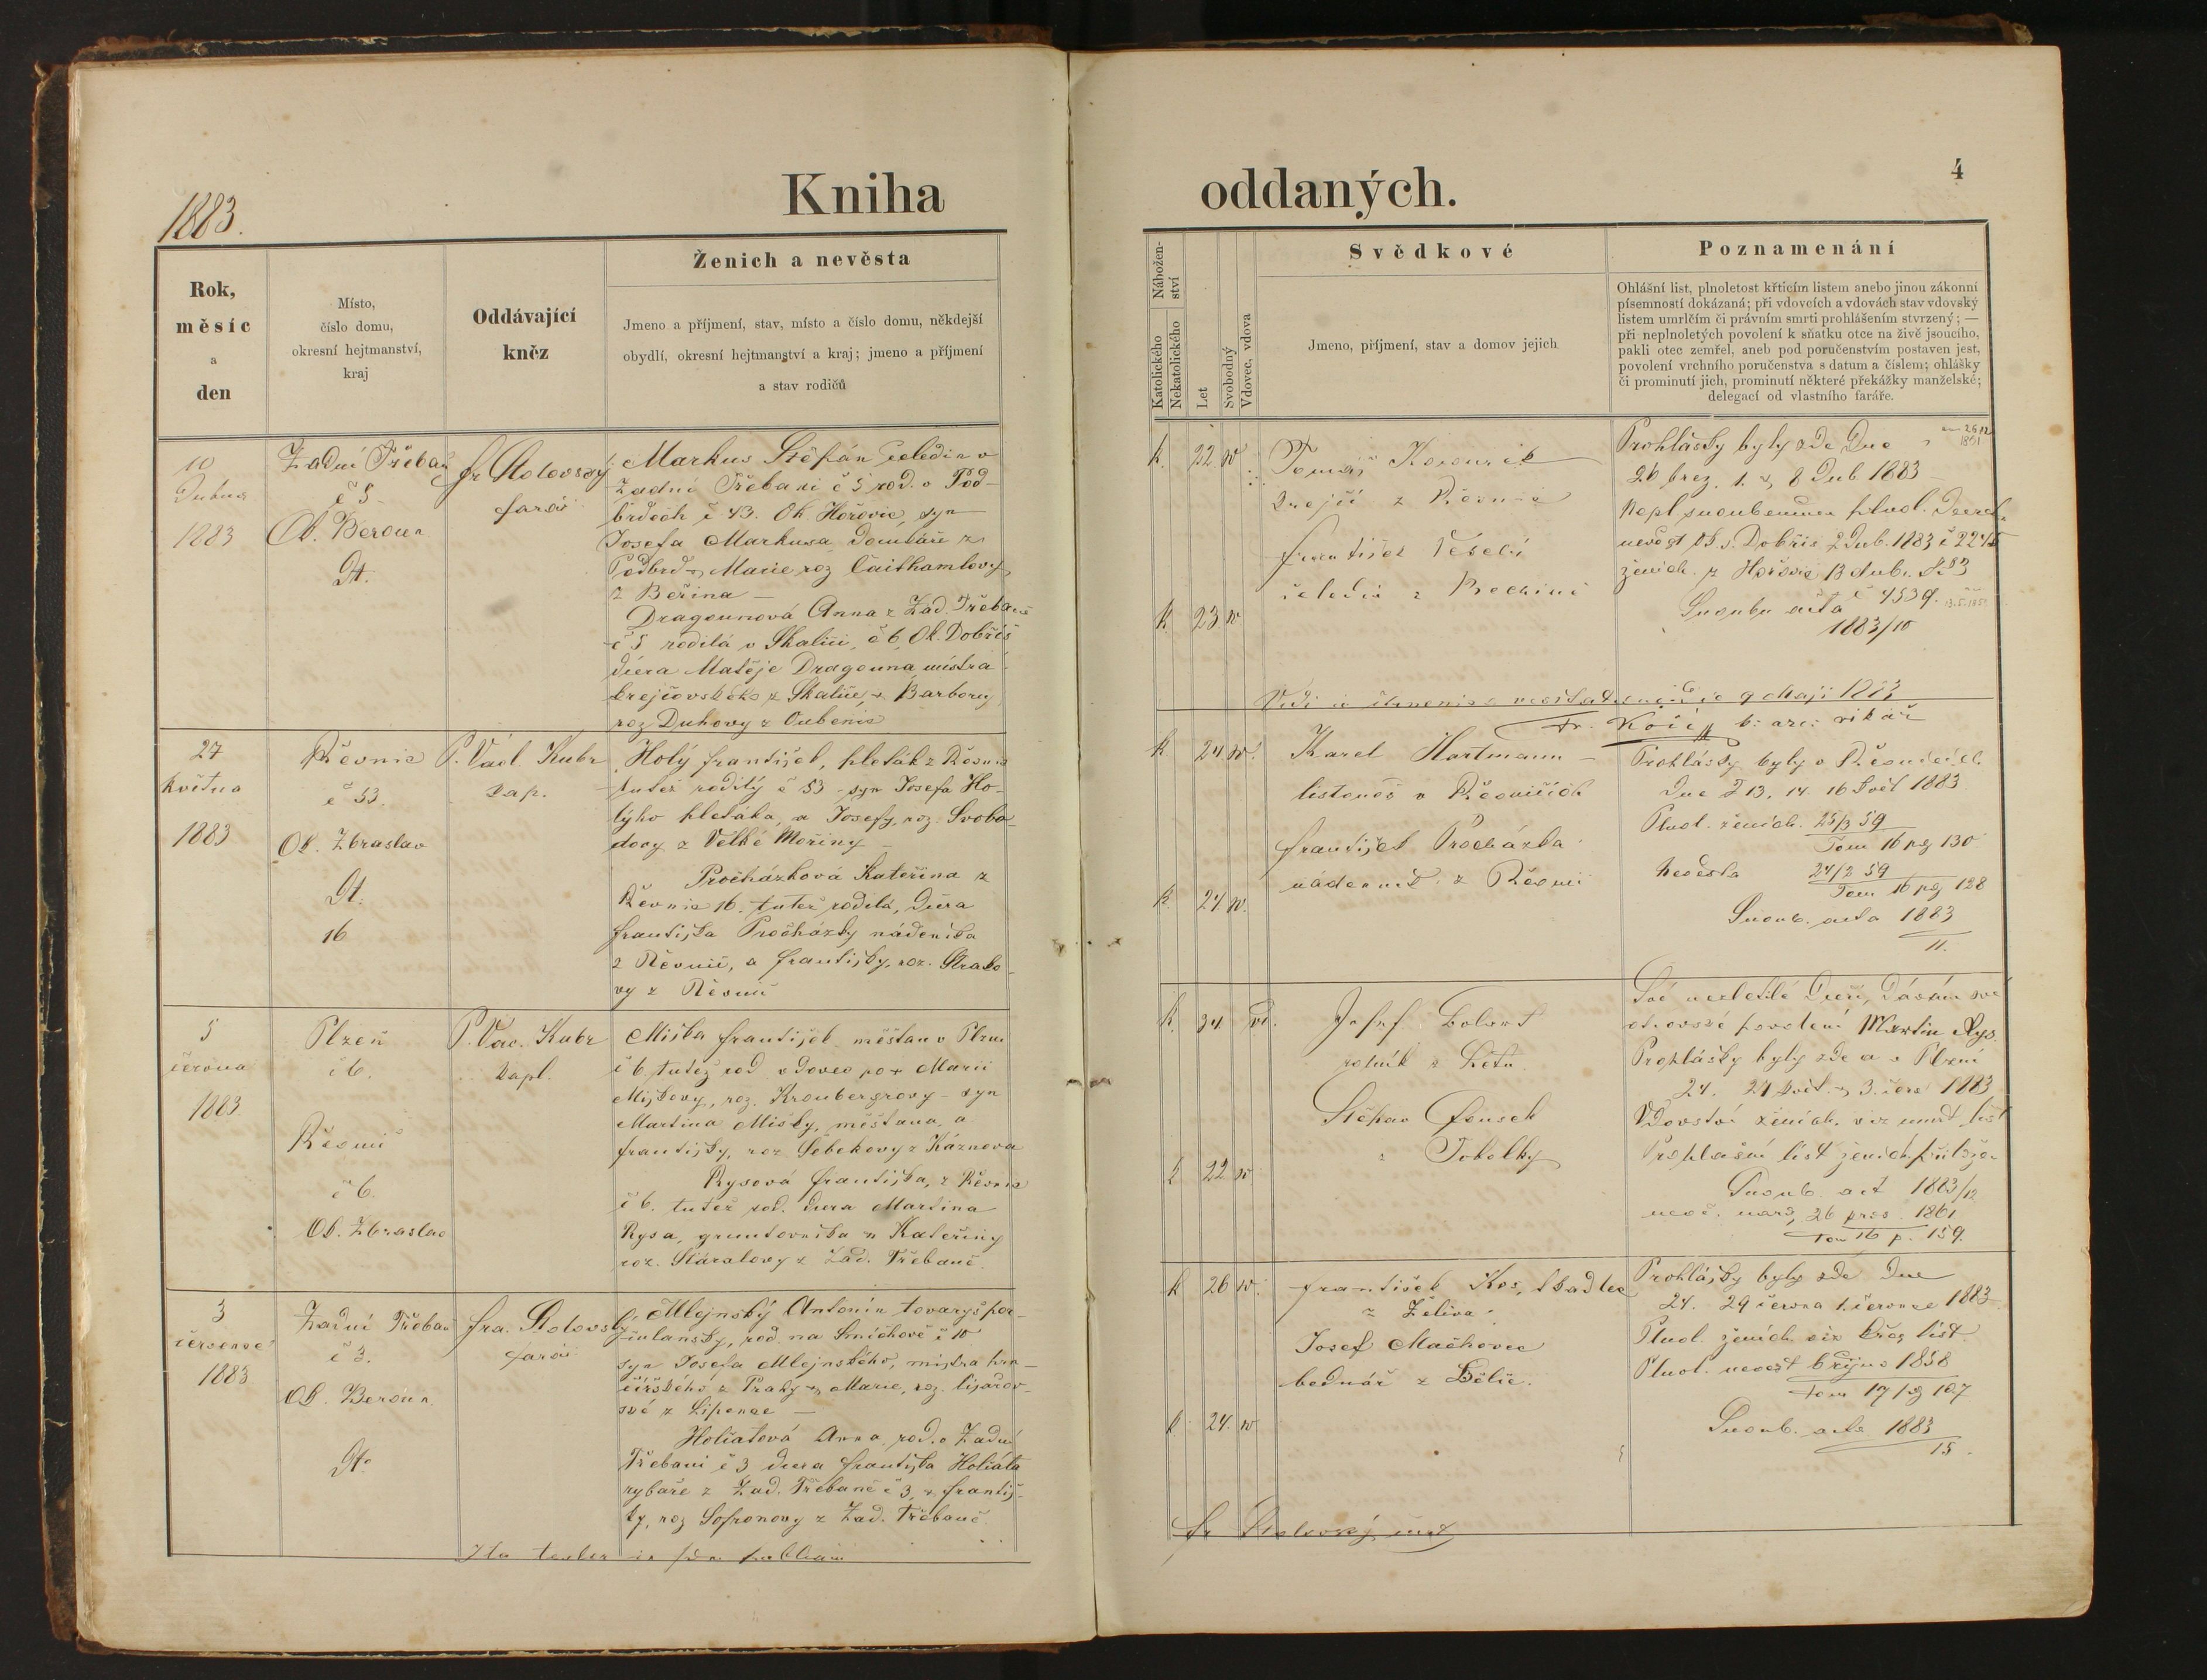 1883.
Kniha
Rok,
měsíc
a
den
Místo,
číslo domu,
okresní hejtmanství,
kraj
Oddávající
kněz
Ženich a nevěsta
Jmeno a příjmení, stav, místo a číslo domu, někdejší
obydlí, okresní hejtmanství a kraj; jmeno a příjmení
a stav rodičů
10
Dubna
1883
Zadní Třebaň
č 5
Ok. Beroun
fr Stolovský
farář
Markus Štěpán čeledín v
Zadní Třebani č 5 rod. v Pod-
brdech č 43. Ok Hořovic, syn
Josefa Markusa domkáře z
Podbrd a Marie roz Čaithamlovy
z Beřína —
Dragounová Anna z Zad. Třebaně
č 5 rodilá v Skalici, č 6, Ok. Dobříš
dcera Matěje Dragouna mistra
krejčovského z Skalice a Barbory
roz Duhovy z Oubenic
27
Května
1883
Řevnic
č 53.
Ok. Zbraslav
16
P. Václ. Kubr
kap.
Holý František, pleták z Řevnic
tutéž rodilý č 53 – syn Josefa Ho-
lýho pletáka, a Josefy, roz. Svobo-
dovy z Velké Mořiny –
Procházková Kateřina z
Řevnic 16. tutéž rodilá, dcera
Františka Procházky nádeníka
z Řevnic, a Františky, roz.
vy z Řevnic
5
června
1883.
Plzeň
č 6.
Řevnic
č 6.
Ok. Zbraslav
P. Vác. Kubr
kapl.
Miška František měšťan v Plzni
č 6 tutéž rod. vdovec po + Marii
Miškovy, roz. Kronbergrovy – syn
Martina Mišky, měšťana, a
Františky, roz. Sebekovy z Káznova
Rysová Františka, z Řevnic
č 6. tutéž rod. dcera Martina
Rysa, gruntovníka a Kateřiny
roz. Stáralovy z Zád. Třebaně.
3
července
1883
Zadní Třebaň
č 3.
Ok. Beroun
fra. Stolovský
farář
Mlejnský Antonín tovaryš por-
culánský, rod. na Smíchově č 10
syn Josefa Mlejnského, mistra
z Prahy a Marie, roz.
z Lipence —
Holiatová Anna rod. v Zadní
Třebani č 3 dcera Františka Holiáta
rybáře z Zad. Třebaně č 3, a Františ-
ky, roz Sofronovy z Zad. Třebaně.
oddaných.
4
Nábožen-
ství
Katolického
Nekatolického
Let
Svobodný
Vdovec, vdova
Svědkové
Jmeno, příjmení, stav a domov jejich
Poznamenání
Ohlášní list, plnoletost křticím listem anebo jinou zákonní
písemností dokázaná; při vdovcích a vdovách stav vdovský
listem umrlčím či právním smrti prohlášením stvrzený; —
při neplnoletých povolení k sňatku otce na živě jsoucího,
pakli otec zemřel, aneb pod poručenstvím postaven jest,
povolení vrchního poručenstva s datum a číslem; ohlášky
či prominutí jich, prominutí některé překážky manželské;
delegací od vlastního faráře.
k.
22
k
23
Tomáš
krejčí z Řevnic
František Veselý
čeledín z
Prohlášky byly zde Dne
26 brez. 1. & 8 Dub 1883
Dobříš 2 Dub. 1883 č 2245
ženich z Hořovic 13 dub.
č 4539.
1883/10
9 Maji 1883
Fr. Kočí b: arc: vikář
k
24
k.
24
Karel Hartmann –
listonoš v Řevnicích
František Procházka
nádenník z Řevnic
Prohlášky byly v Řevnicích
Dne 13, 14. 16 Květ 1883
Plnol. ženich. 25/3 59
Tom 16 pg 130
Nevěsta 24/2 59
Tom 16 pg 128
Snoub. acta 1883
11.
k.
34
vd.
k
22
Josef
rolník z
Štěpán
z Tobolky
otcovské povolení Martin Rys.
Prohlášky byly zde a v Plzni
24. 27 květ. & 3. červ 1883
Vdovství ženich. viz umrt. list
Prohlašní list ženich
Snoub. act 1883/12
1861
Tom 16 p. 159.
k
26
k
24.
František Kos,
z Želiva.
Josef Machovec
bednář z Bělic.
Prohlášky byly zde Dne
24. 29 června 1 července 1883
Plnol. ženich viz křes list.
Plnol. nevěst 6 říjns 1858
Tom 17 pg 107
Snoub. acta 1883
15.
fr Stolovský